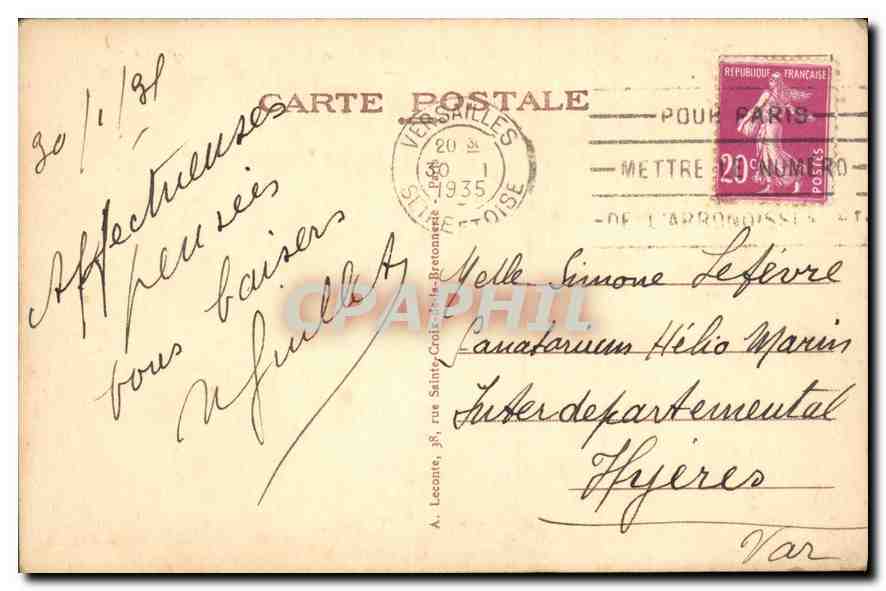 CARTE POSTALE
REPUBLIQUE FRANÇAISE
20c
POSTES
VERSAILLES
20
30 1
1935
SEINE ET OISE
POUR PARIS
METTRE LE NUMERO
DE L'ARRONDISSEMENT
30/1/35
Affectueuses
pensées
bons baisers
Melle Simone Lefèvre
Sanatorium Hélio Marin
Interdepartemental
Hyéres
Var
A. Leconte, 38, rue Sainte-Croix-de-la-Bretonnerie - Paris
CPAPHIL